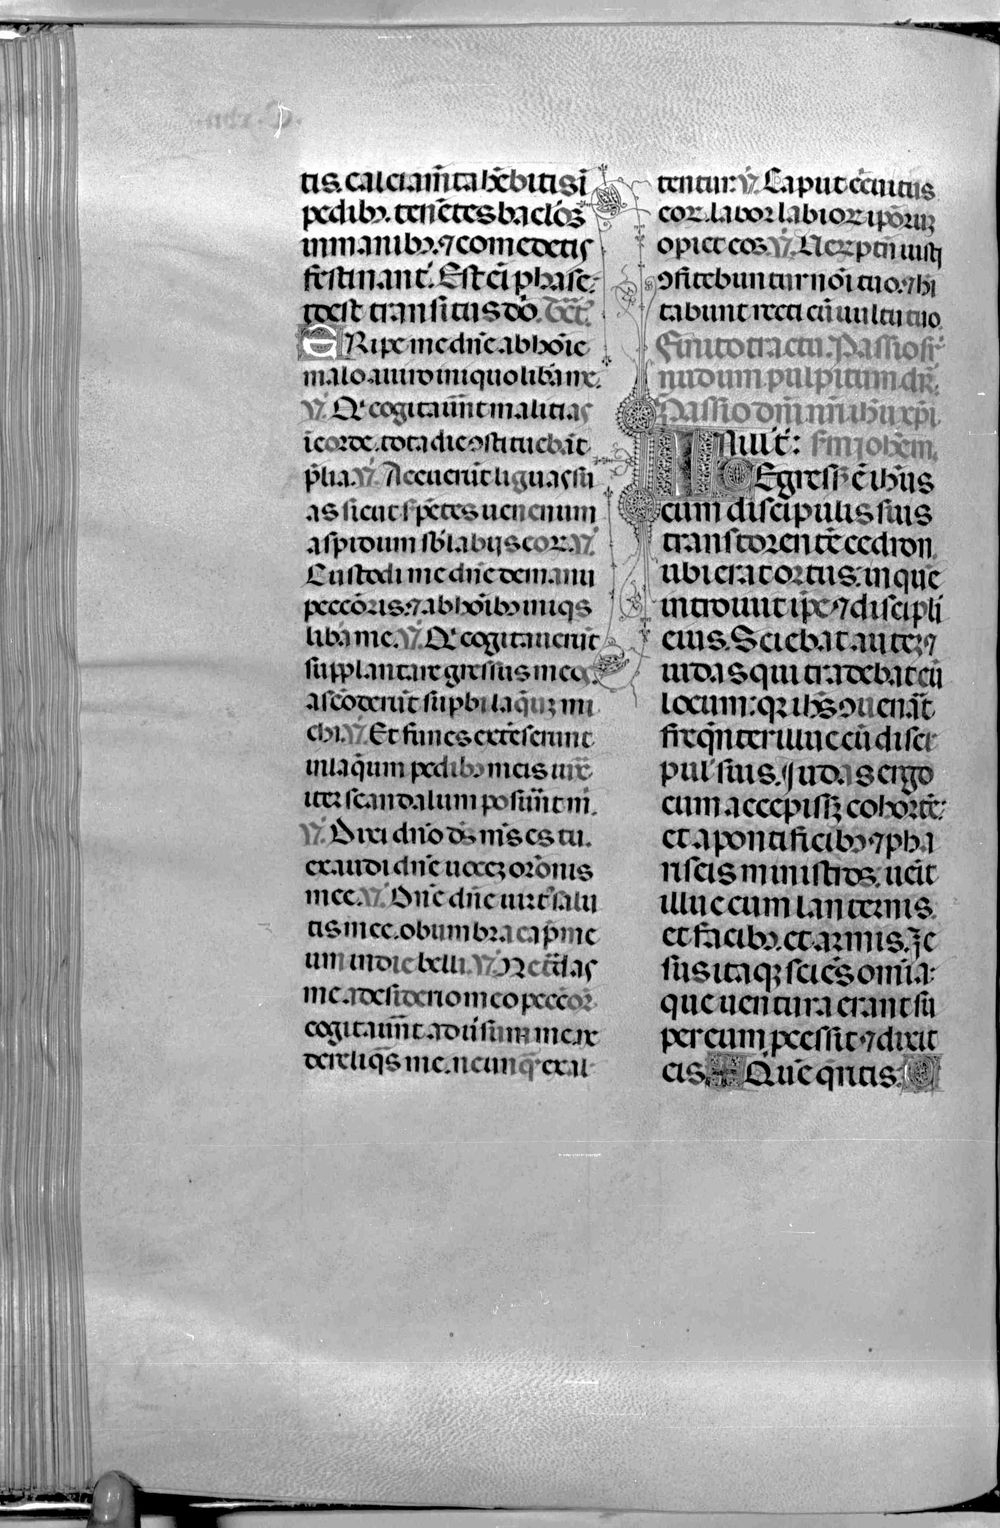 tis. calciam̄ta hēbitis ī
pedibꝫ. tenētes baclōs
in manibꝫ. ⁊ comedetis
festinant̄. Est eī phase.
idest transitus dō. Tct̄.
ERipe me dn̄e ab hoīe
malo. a uiro iniquo liba me.
℣. Q̄ cogitaūnt malitias
ī corde. tota die ꝯstituebāt
p̄lia. ℣. Acuerūt liguas su
as sicut s̄pētes uenenum
aspidum sb̄ labijs eoꝝ. ℣.
Custodi me dn̄e de manu
peccōris. ⁊ ab hōibꝫ iniqs
libāme. ℣. Q̄ cogitauerūt
supplantare gressus meos
ascōderūt supbi laq̄uꝫ mi
chi. ℣. Et funes extēserunt
in laq̄um pedibꝫ meis iux̄
iter scandalum posuer̄t m̄.
℣. Dixi dn̄o ds̄ ms̄ es tu.
exaudi dn̄e uocēꝫ orōnis
mee. ℣. Dn̄e dn̄e uirt̄ salu
tis mee. obumbra cap̄ me
um in die belli. ℣. Ne t̄das
me a desiderio meo peccōr̄
cogitaūnt aduīsum me. ne
dereliq̄s me. ne unq̄ exal
tentur. ℣. Caput c̄cuitus
eoꝝ. labor labioꝝ ipōrūꝫ
opiet eos. ℣. Ueꝝ ptn̄ iusti
ꝯfitebuntur noī tuo. ⁊ hi
tabunt recti cū uultu tuo.
Finito tractu. Passio sr̄
nudum pulpitum. dr̄.
Passio dn̄i nr̄i ihū xp̄i
scdm̄ johēm.
Egressꝫ ē ihūs
cum discipulis suis
trans torentē cedron
ubi erat ortus. in quē
introiuit ip̄e ⁊ discipli
eius. Sciebat auteꝫ ⁊
iudas qui tradebat eū
locum: qꝛ ihs̄ ꝯuen̄at
freq̄nter illuc cū disci
pul' suis. Judas ergo
cum accepissꝫ cohortē:
et a pontificibꝫ ⁊ pha
riseis ministros. ueīt
illuc cum lanternis.
et facibꝫ. et armis. Je
sus itaqꝫ sciēs omīa:
que uentura erant su
per eum. pcessit ⁊ dixit
eis. ✠ Quē qr̄itis. C